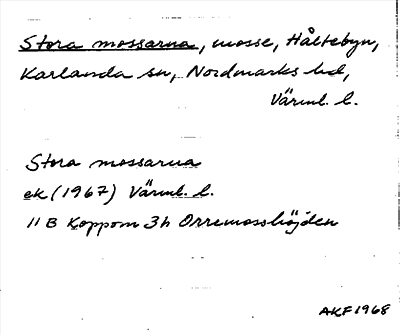 Stora mossarna, mosse, Håltebyn,
Karlanda sn, Nordmarks hd,
Värml. l.
Stora mossarna
ek (1967) Värml. l.
11 B Koppom 3h Orremosshöjden
AKF 1968